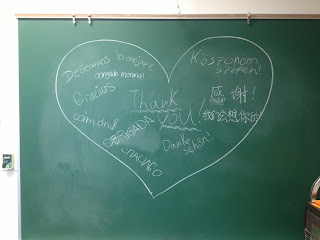 Deseamos lo mejor!
Gracias
cám ơn!
OBRIGADA
СПАСИБО
Thank
you!
Danke
schön!
Köszönöm
szépen!
感谢!
我会想你的